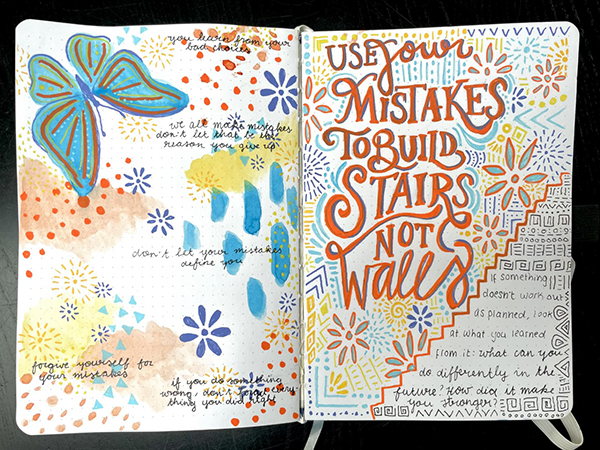 you learn from your
bad choices
we all make mistakes
don't let that be the
reason you give up
don't let your mistakes
define you
forgive yourself for
your mistakes
if you do something
wrong, don't forget every
thing you did right
USE your
MISTAKES
TO BUILD
STAIRS
NOT
Walls
If something
doesn't work out
as planned, look
at what you learned
from it: what can you
do differently in the
future? How did it make
you stronger?